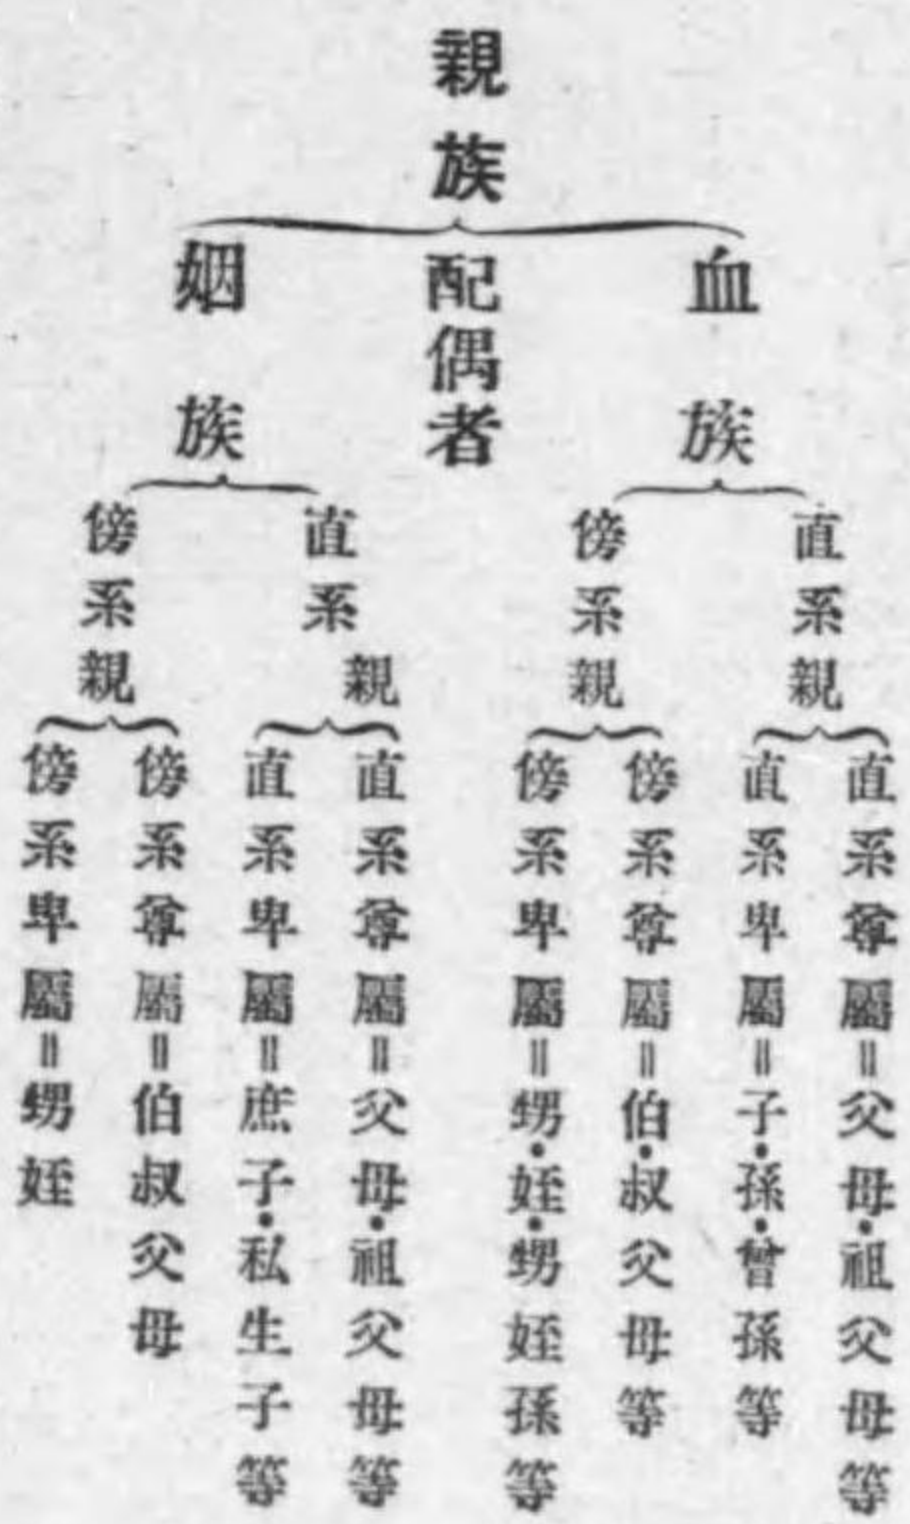 親族
血族
直系親
直系尊屬＝父母・祖父母等
直系卑屬＝子・孫・曾孫等
傍系親
傍系尊屬＝伯・叔父母等
傍系卑屬＝甥・姪・甥姪孫等
配偶者
姻族
直系親
直系尊屬＝父母・祖父母等
直系卑屬＝庶子・私生子等
傍系親
傍系尊屬＝伯叔父母
傍系卑屬＝甥姪